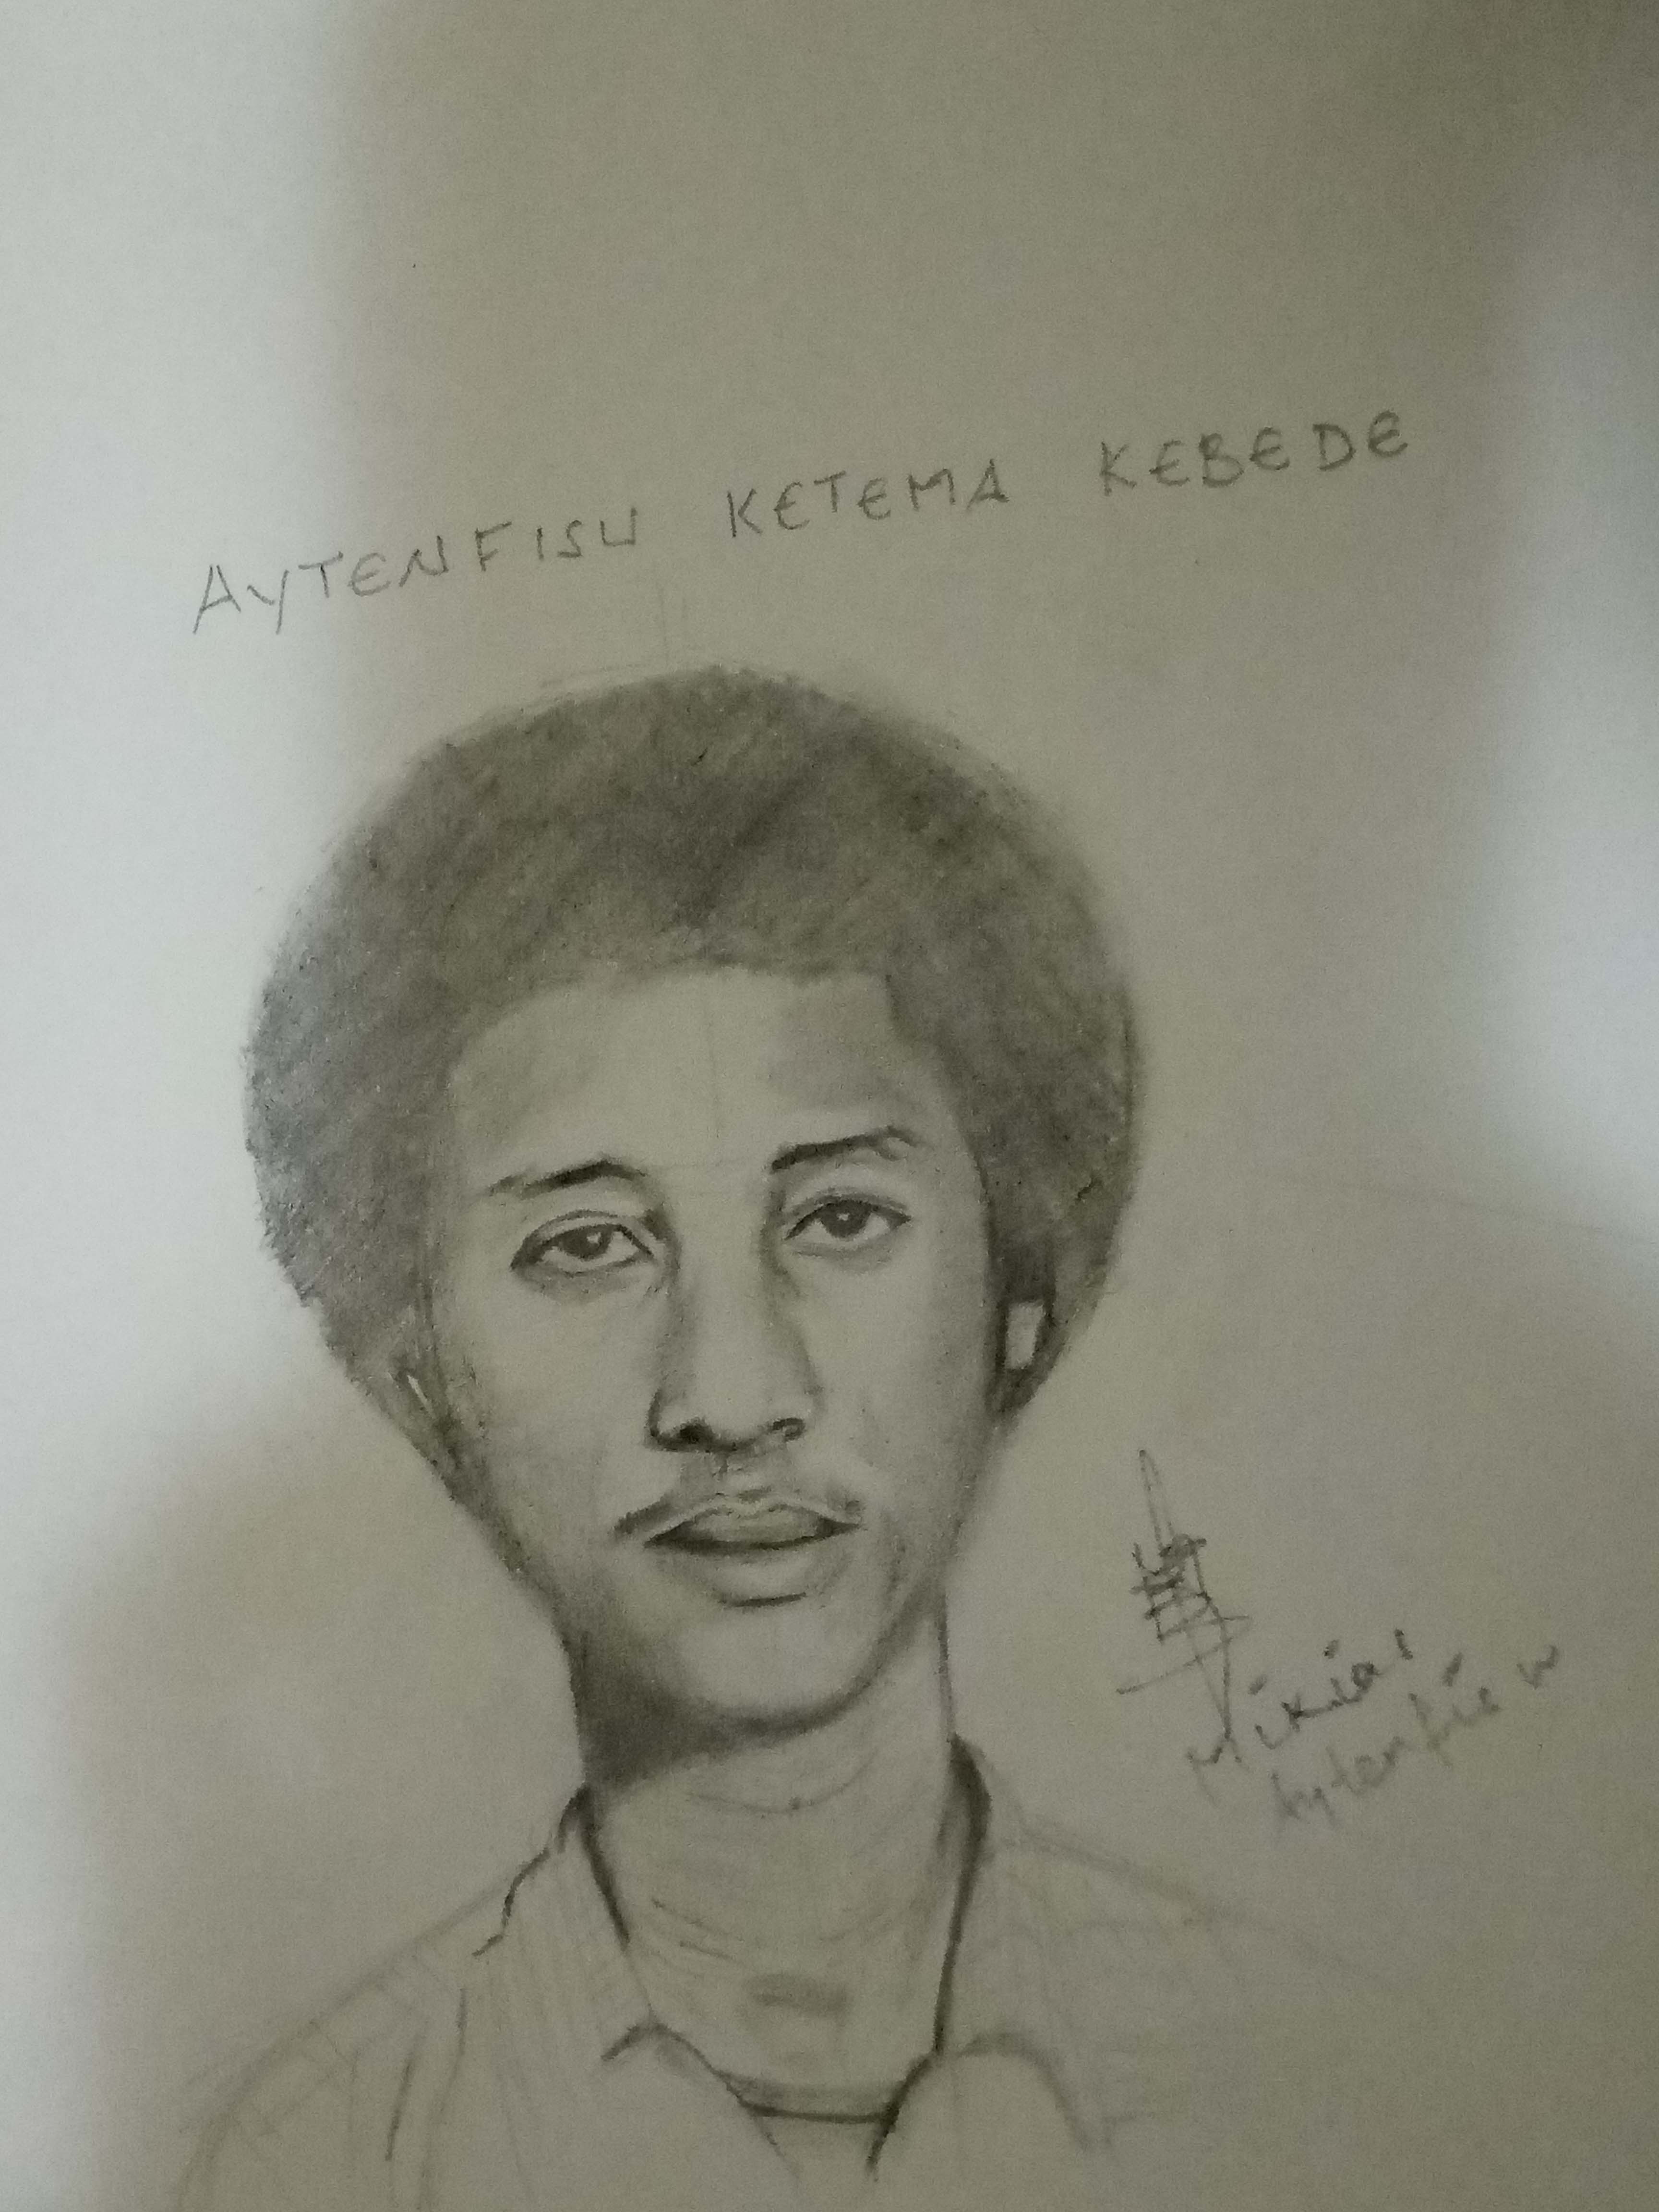 AYTENFISU KETEMA KEBEDE
Mikias
Aytenfisu